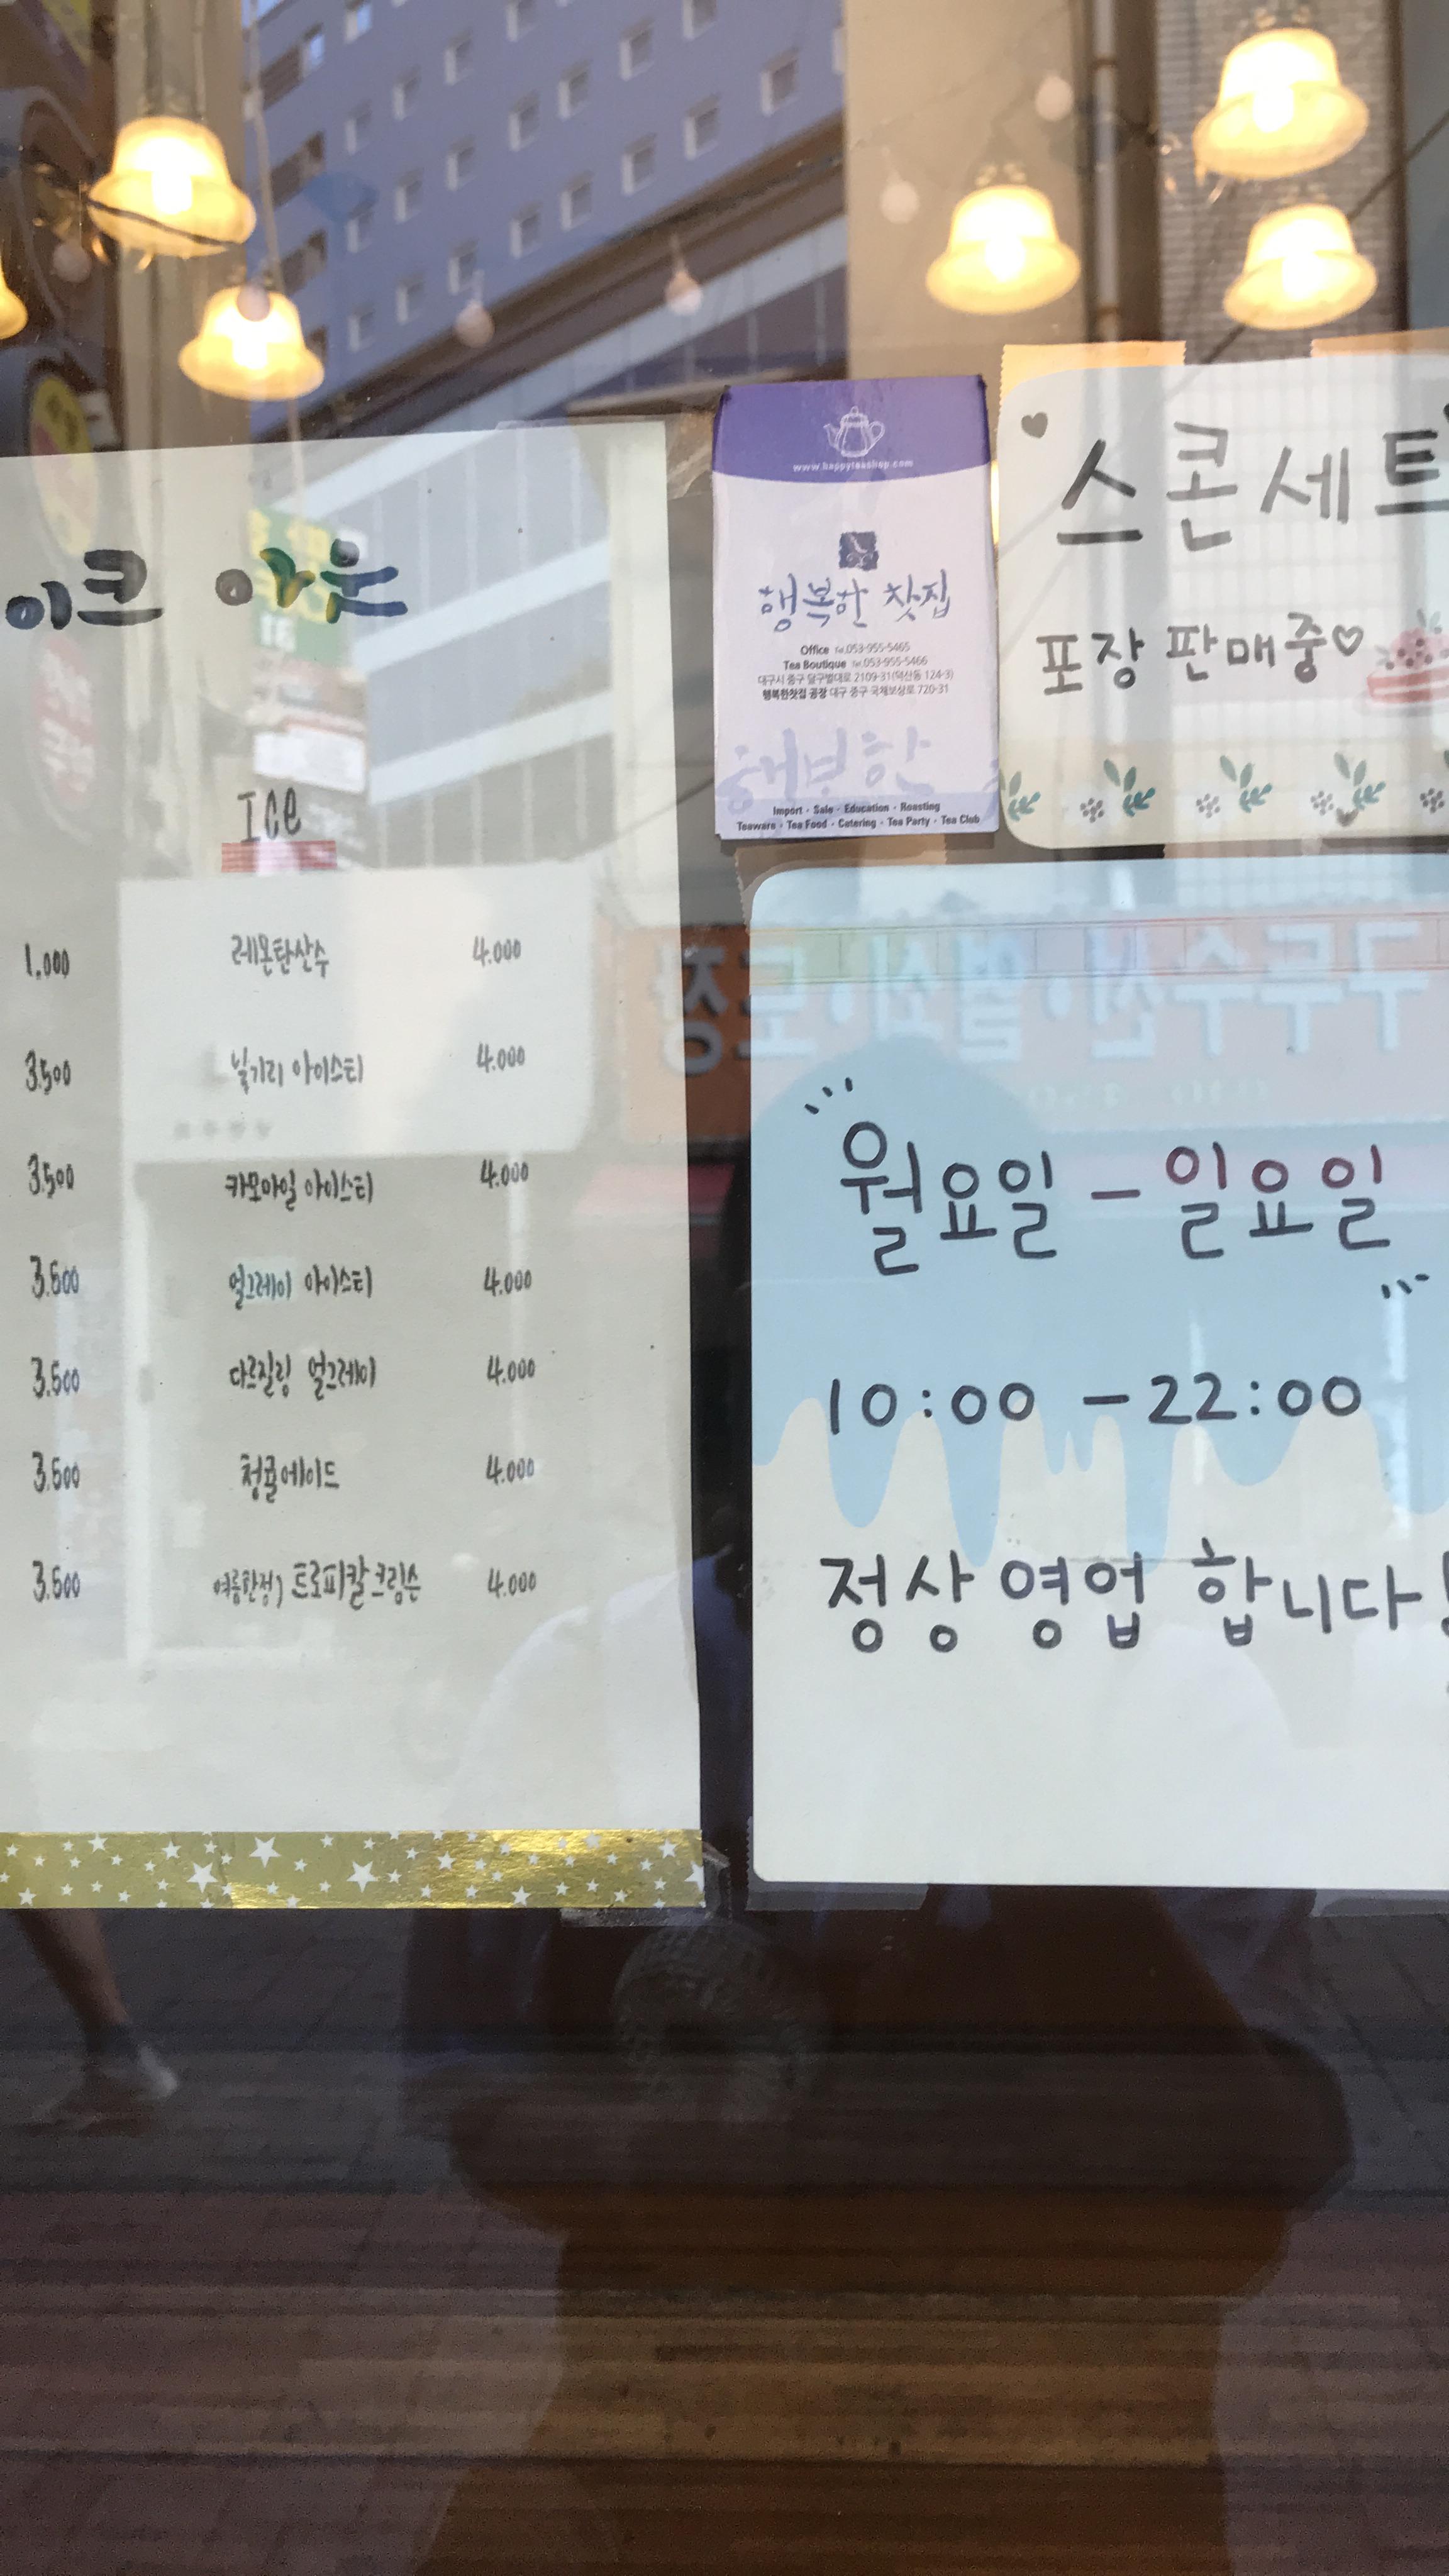 이크 아웃
ICe
1.000 레몬탄산수 4.000
3.500 빌기리 아이스티 4.000
3.500 카모마일 아이스티 4.000
3.500 얼그레이 아이스티 4.000
3.500 다르질링 얼그레이 4.000
3.500 청귤에이드 4.000
3.500 여름한정) 트로피칼크림슨 4.000
www.happyteashop.com
행복한 찻집
Office Tel.053-955-5465
Tea Boutique Tel.053-955-5466
대구시 중구 달구벌대로 2109-31(덕산동 124-3)
행복한찻집 공장 대구 중구 국채보상로 720-31
행복한
Import · Sale · Education · Roasting
Teaware · Tea Food · Catering · Tea Party · Tea Club
스콘세트
포장 판매중♡
월요일 - 일요일
10:00 - 22:00
정상 영업 합니다!